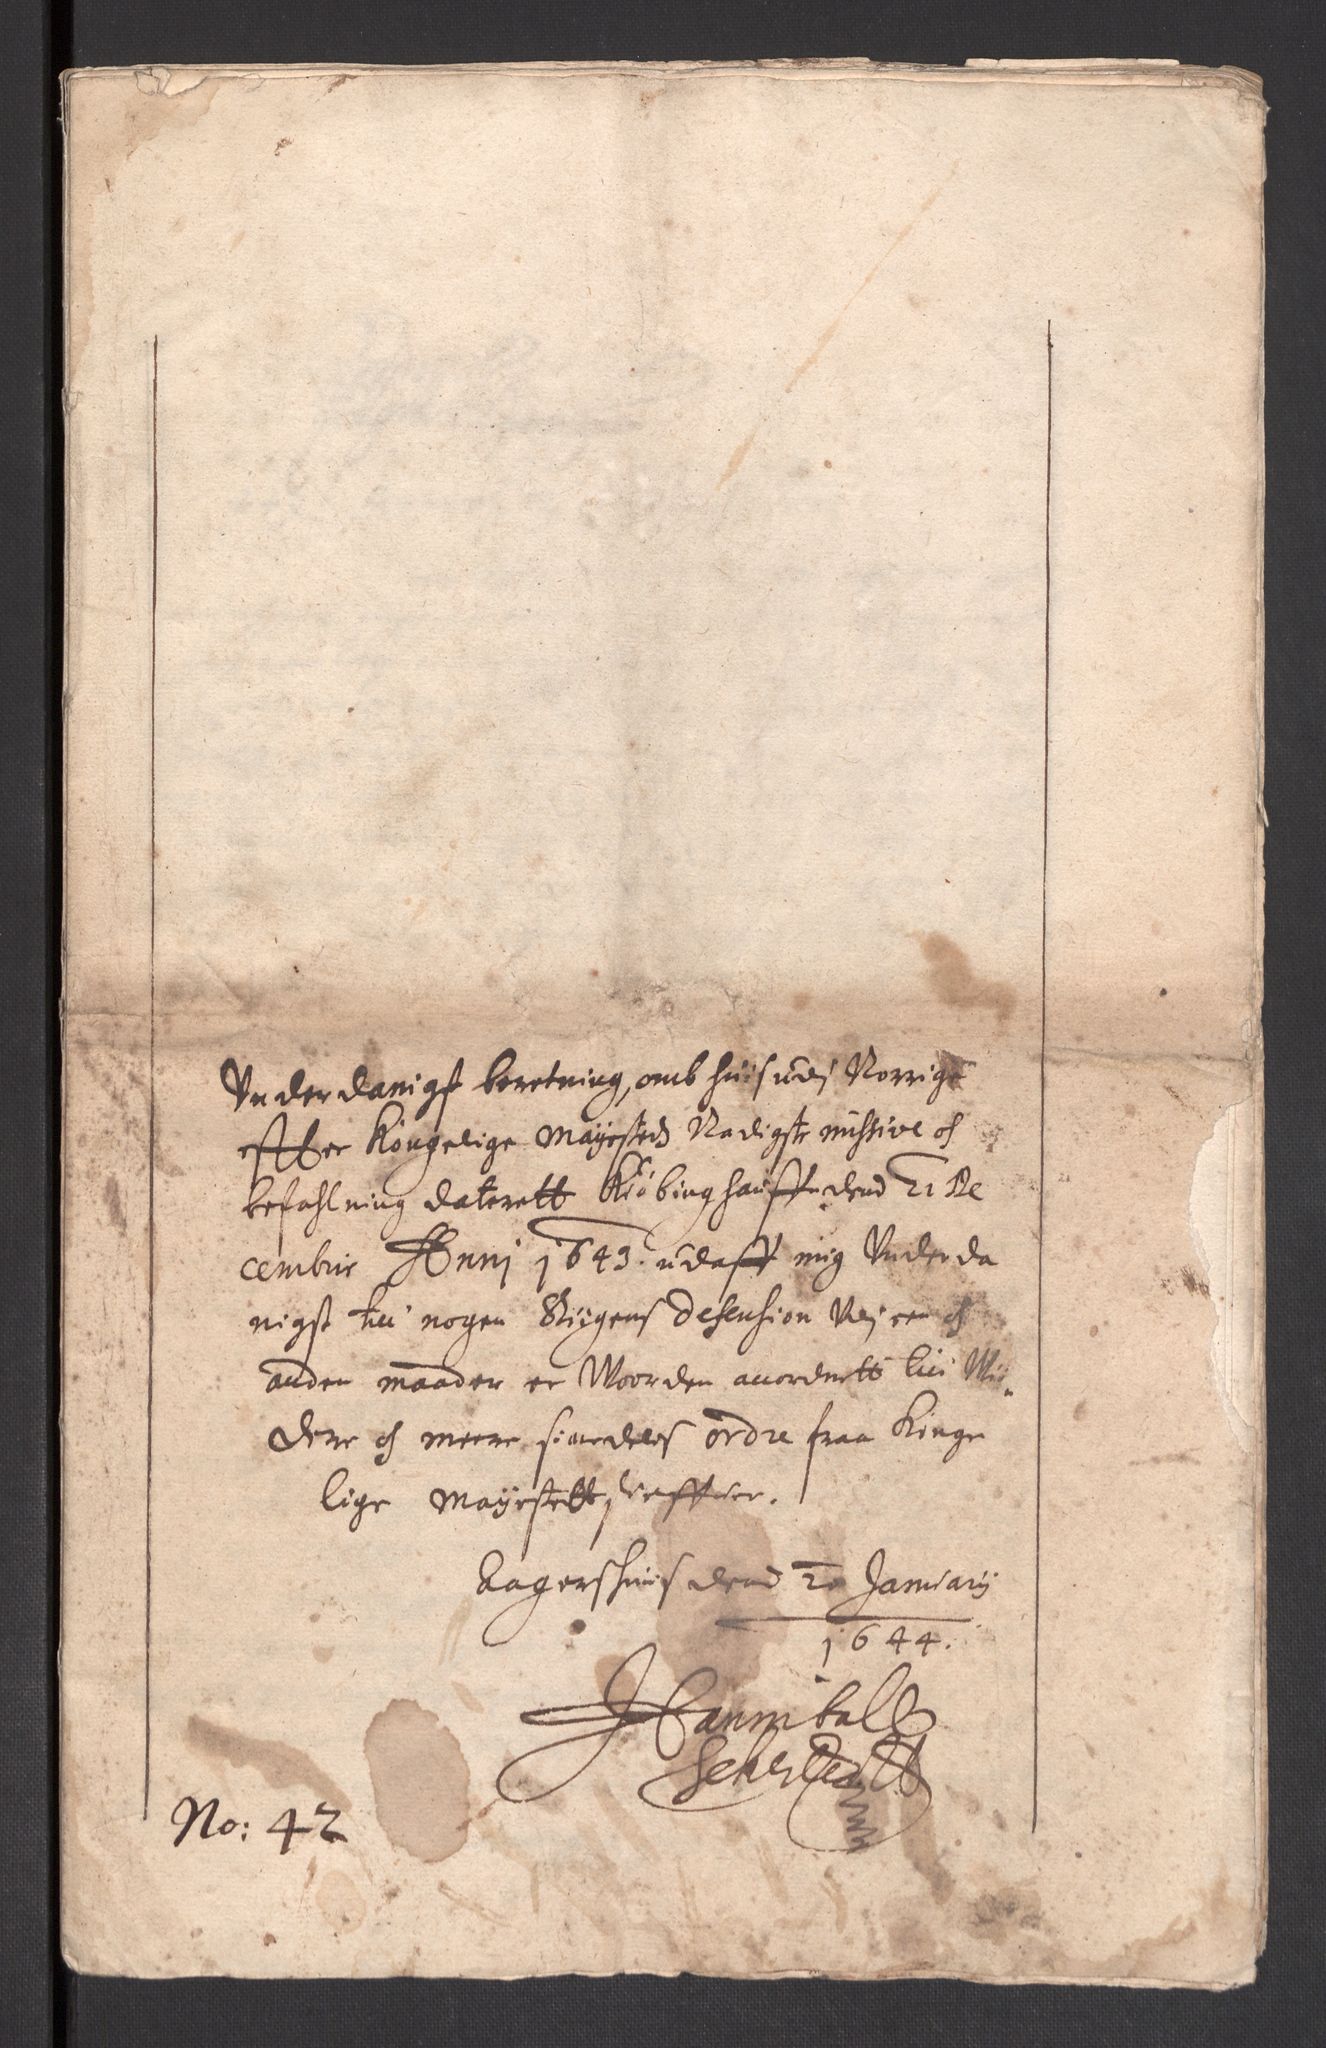 Vnderdanigst beretning, omb huis udj Norrige
effter Kongelige Mayesteds Nadigste missive och
befahlning daterett Kiöbinghaufften dend 21 De
cembris Anni 1643. udaff mig Vnderda
nigst till nogen Riigens Defension Vej een och
anden maader er Woorden anordnett till Wii„
dere och meere ordre fraa Konge
lige Mayestett, derefftter.
Aagershuus dend 20 Januarij
1644.
Hannibal
Sehestedtt
No: 42